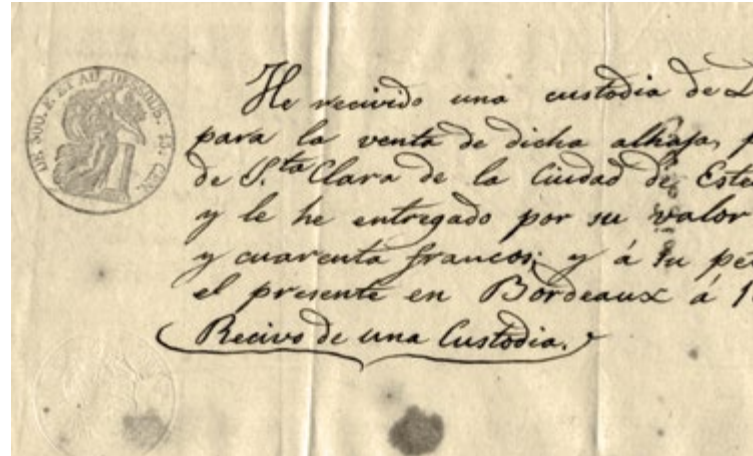 DE 500 F. ET AU DESSOUS. 15 CEN.
He recivido una custodia de D
para la venta de dicha alhaja, p
de S.ta Clara de la Ciudad de Este
y le he entregado por su valor
y cuarenta francos; y á su pe
el presente en Bordeaux á 1
Recivo de una Custodia.